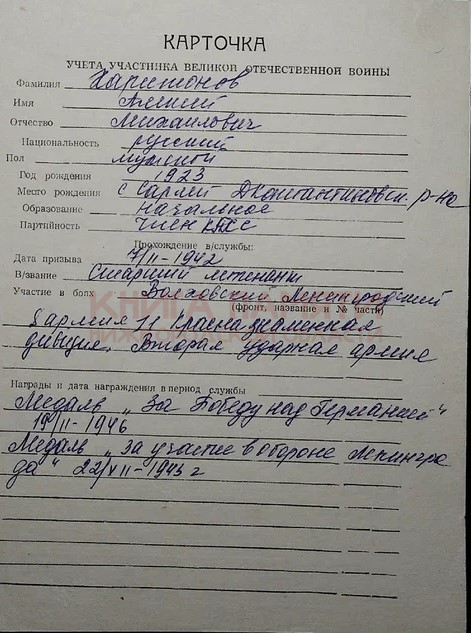 КАРТОЧКА
УЧЕТА УЧАСТНИКА ВЕЛИКОЙ ОТЕЧЕСТВЕННОЙ ВОЙНЫ
Фамилия Харитонов
Имя Алексей
Отчество Михайлович
Национальность русский
Пол мужской
Год рождения 1923
Место рождения с Сарлей ДКонстантиновск. р-на
Образование начальное
Партийность член КПСС
Прохождение в/службы:
Дата призыва 7/II-1942
В/звание Старший лейтенант
Участие в боях Волховский Ленинградский
(фронт, название и № части)
8 армия 11 Краснознаменная
дивизия. Вторая ударная армия
КНИГА
Награды и дата награждения в период службы
Медаль „За Победу над Германией"
/II-1946
Медаль „за участие в обороне Ленингра
да" 22/VII-1943 г